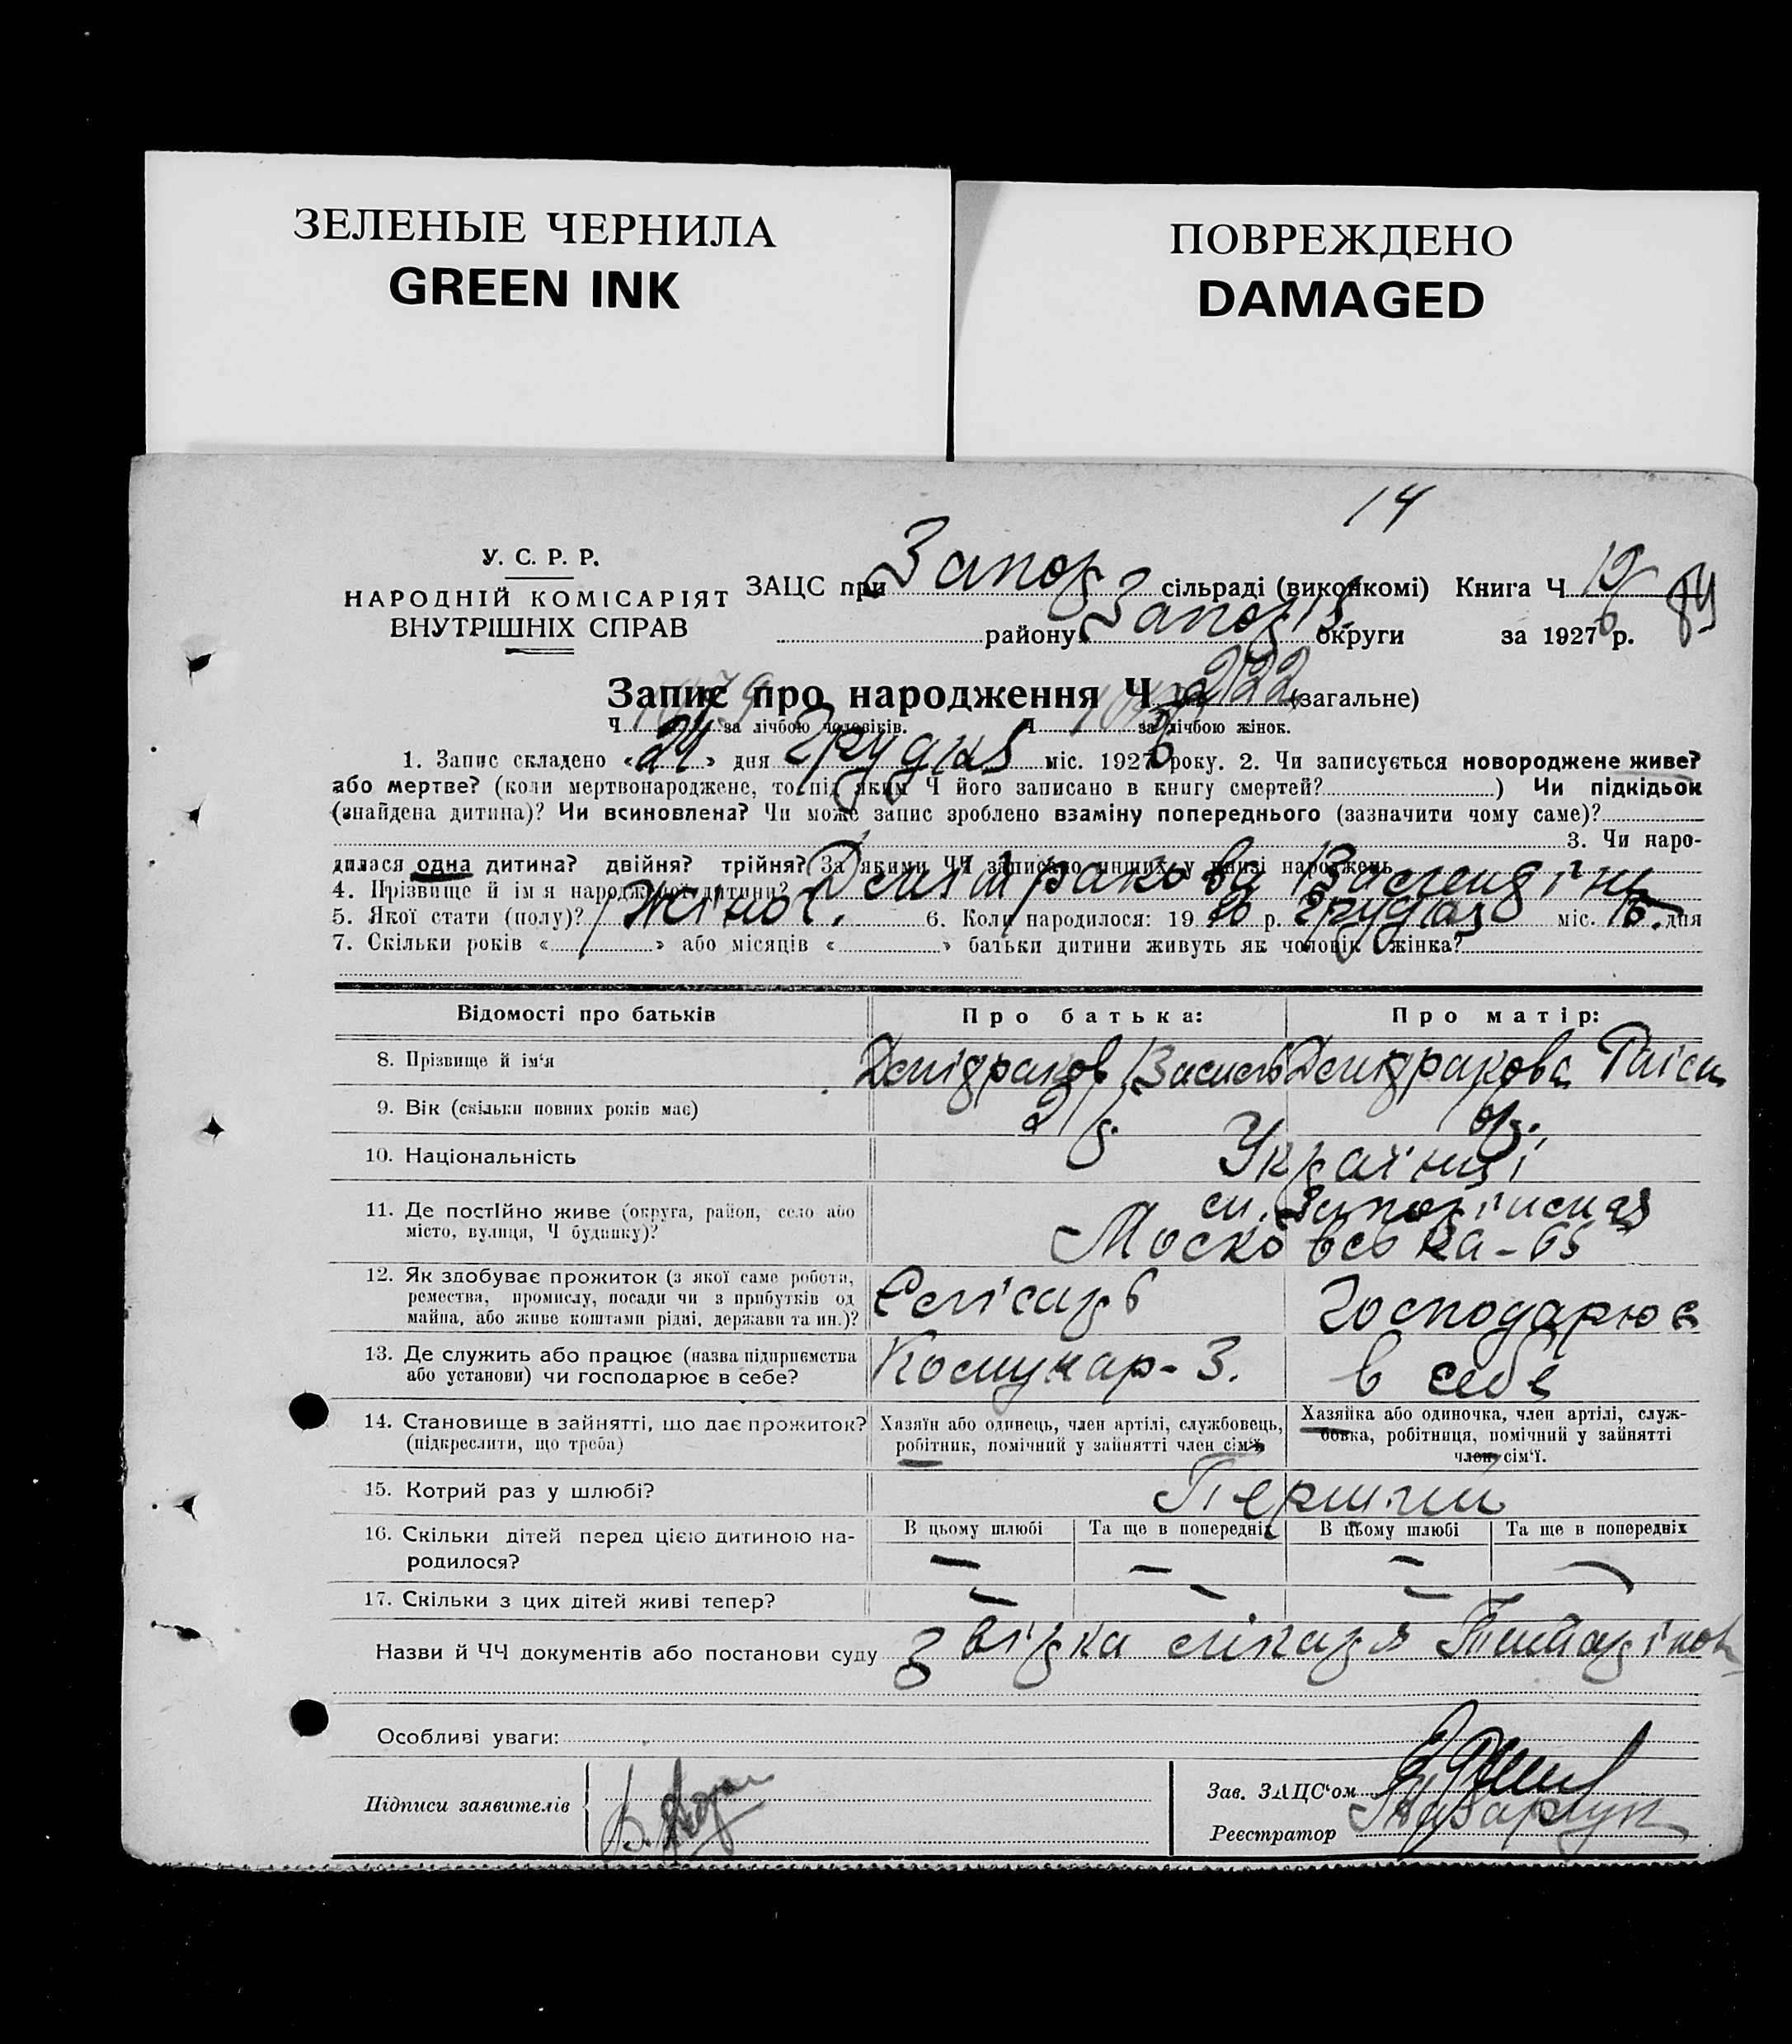 ЗЕЛЕНЫЕ ЧЕРНИЛА
GREEN INK
ПОВРЕЖДЕНО
DAMAGED
14
У. С. Р. Р.
НАРОДНІЙ КОМІСАРІЯТ
ВНУТРІШНІХ СПРАВ
ЗАЦС при Запор сільраді (виконкомі) Книга Ч
району Запоріз округи за 1927 6 р.
Запис про народження Ч 222 (загальне)
Ч за лічбою чоловіків. Ч за лічбою жінок.
1. Запис складено «24» дня Грудня міс. 1927 6 року. 2. Чи записується новороджене живе?
або мертве? (коли мертвонароджене, то під яким Ч його записано в книгу смертей? ) Чи підкідьок
(знайдена дитина)? Чи всиновлена? Чи може запис зроблено взаміну попереднього (зазначити чому саме)?
3. Чи наро-
дилася одна дитина? двійня? трійня? За якими ЧЧ записано инших у книзі народжень
4. Прізвище й імя народженої дитини?
5. Якої статі (полу)? Жіноч. 6. Коли народилося: 19 26 р. Грудня міс. 16. дня
7. Скільки років « » або місяців « » батьки дитини живуть як чоловік і жінка?
Відомості про батьків
Про батька:
Про матір:
8. Прізвище й ім'я Василь Раіса
9. Вік (скільки повних років має)
10. Національність Українці
11. Де постійно живе (округа, район, село або
місто, вулиця, Ч будинку)?
Московська - 65
12. Як здобуває прожиток (з якої саме роботи,
ремества, промислу, посади чи з прибутків од
майна, або живе коштами рідні, держави та ин.)?
Слісарь
Господарює
13. Де служить або працює (назва підприємства
або установи) чи господарює в себе?
Комунар - З.
в себе
14. Становище в зайнятті, що дає прожиток?
(підкреслити, що треба)
Хазяїн або одинець, член артілі, службовець,
робітник, помічний у зайнятті член сім'ї.
Хазяйка або одиночка, член артілі, служ-
бовка, робітниця, помічний у зайнятті
член сім'ї.
15. Котрий раз у шлюбі? Перший
16. Скільки дітей перед цією дитиною на-
родилося?
В цьому шлюбі
Та ще в попередніх
В цьому шлюбі
Та ще в попередніх
— — — —
17. Скільки з цих дітей живі тепер?
— — — —
Назви й ЧЧ документів або постанови суду лікаря
Особливі уваги:
Підписи заявителів
Зав. ЗАЦС'ом
Реєстратор